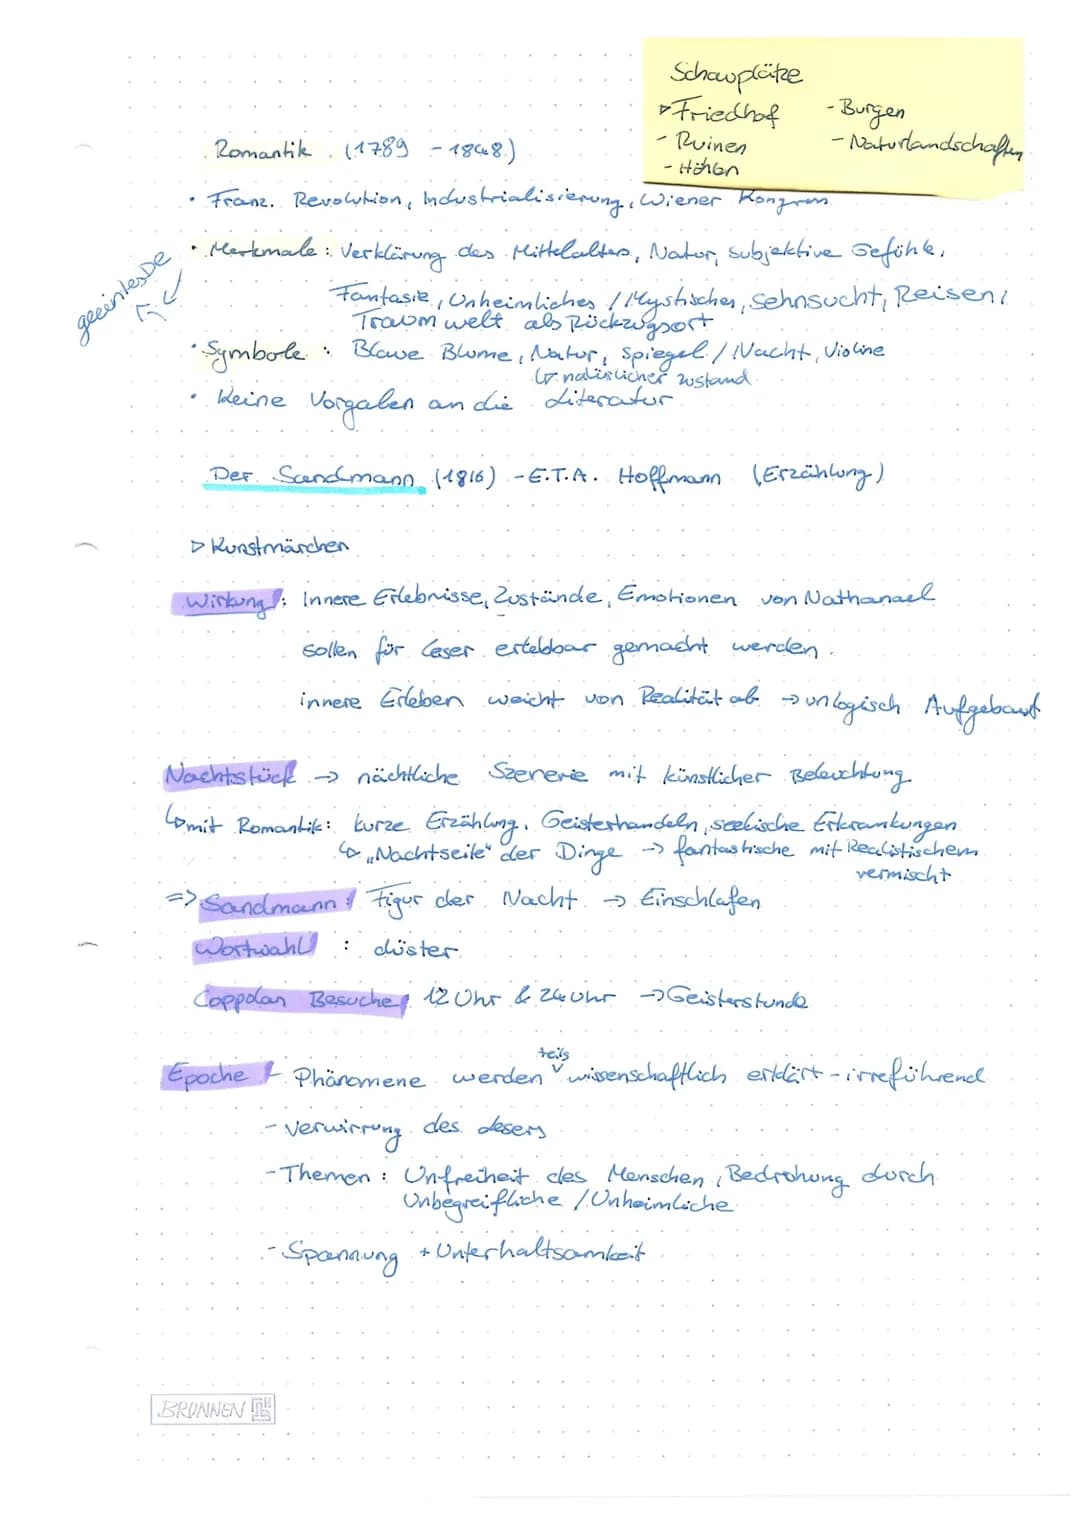 Schauplätze
▹Friedhof
- Burgen
- Ruinen
- Naturlandschaften
- Höhlen
Romantik (1789 - 1848)
• Franz. Revolution, Industrialisierung, Wiener Kongress
• Merkmale: Verklärung des Mittelalters, Natur, subjektive Gefühle,
geeintes DE
Fantasie, Unheimliches / Mystisches, Sehnsucht, Reisen,
Traumwelt als Rückzugsort
• Symbole: Blaue Blume, Natur, Spiegel / Nacht, Violine
↳ natürlicher Zustand
• Keine Vorgaben an die Literatur
Der Sandmann (1816) - E.T.A. Hoffmann (Erzählung)
▹ Kunstmärchen
Wirkung: Innere Erlebnisse, Zustände, Emotionen von Nathanael
sollen für Leser erlebbar gemacht werden.
innere Erleben weicht von Realität ab → unlogisch Aufgebaut
Nachtstück → nächtliche Szenerie mit künstlicher Beleuchtung
↳ mit Romantik: kurze Erzählung, Geisterhandeln, seelische Erkrankungen
↳ „Nachtseite" der Dinge → fantastische mit Realistischem
vermischt
=> Sandmann: Figur der Nacht → Einschlafen
Wortwahl: düster
Coppolas Besuche: 12 Uhr & 24 Uhr → Geisterstunde
teils
Epoche - Phänomene werden ˅ wissenschaftlich erklärt - irreführend
- Verwirrung des Lesers
- Themen: Unfreiheit des Menschen, Bedrohung durch
Unbegreifliche / Unheimliche
- Spannung + Unterhaltsamkeit
BRUNNEN